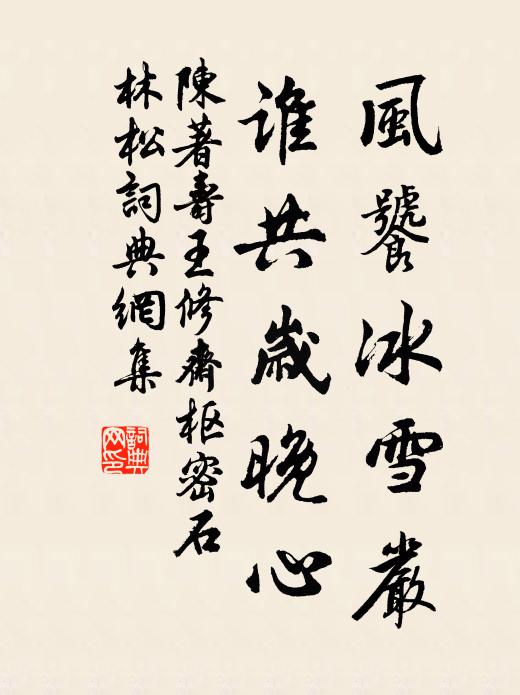 風饕冰雪嚴
誰共歲晚心
陳著壽王修齋枢密石
林松詞典網集
詞典网印